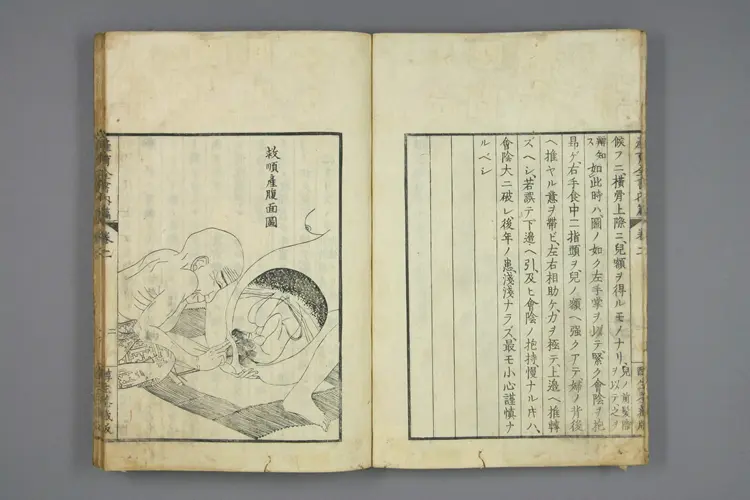 候フニ、横骨上際ニ、兒額ヲ得ルモノナリ、
如此時ハ、圖ノ如ク左手掌ヲ以テ緊ク會陰ヲ抱
昂ゲ、右手食中二指頭ヲ兒ノ額ヘ强クアテ婦ノ背後
ヘ推ヤル意ヲ帶ビ、左右相助ケ、力ヲ極テ上邉ヘ推轉
ズヘシ、若誤テ下邉ヘ引及ヒ會陰ノ抱持慢ナルキハ、
會陰大ニ破レ後年ノ患淺淺ナラズ、最モ小心謹慎ナ
ルベシ
救順產腹面圖
卷二